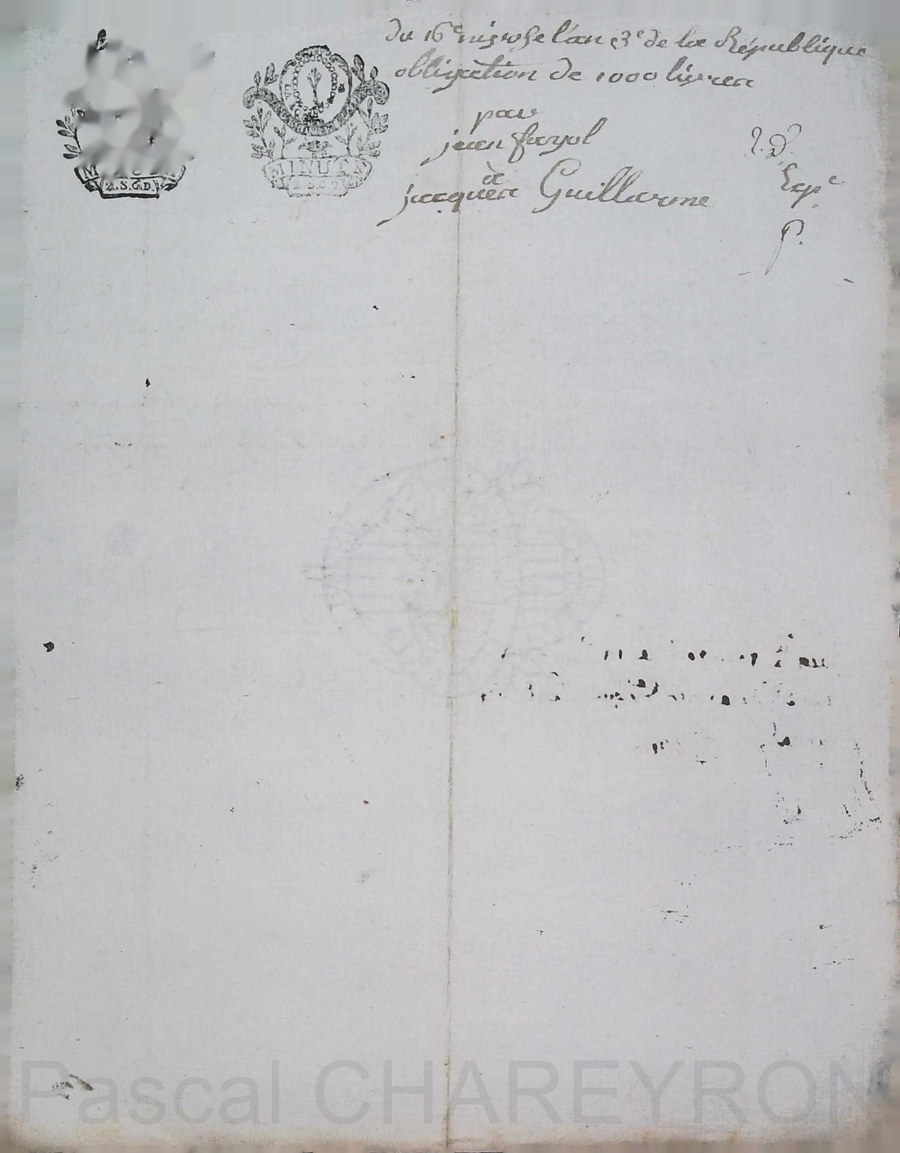 du 16e nivose l'an 3e de la République
obligation de 1000 livres
par
jean fayol
à
jacques Guillarme
Expe
P.
MINUTE
2.S.6.D.
Pascal CHAREYRON